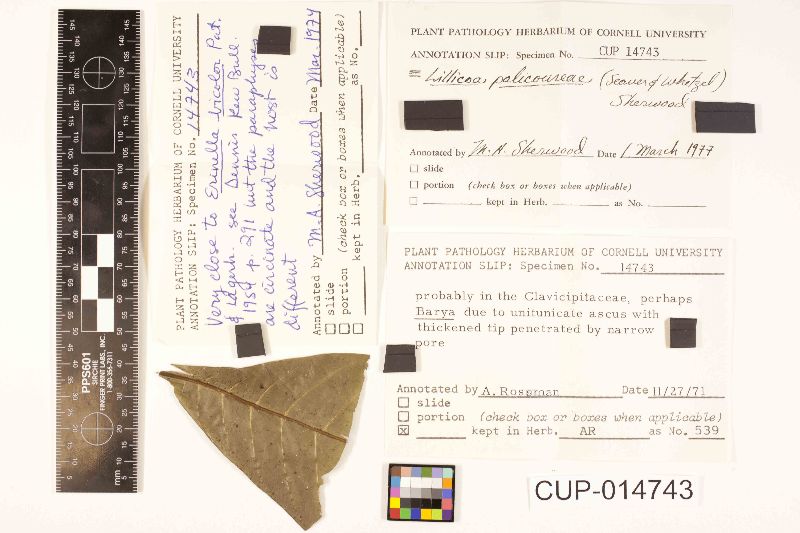 PLANT PATHOLOGY HERBARIUM OF CORNELL UNIVERSITY
ANNOTATION SLIP: Specimen No. 14743
Very close to Erinella bicolor Pat.
& Lagerh. see Dennis Kew Bull.
1954 p. 291 but the paraphyses
are circinate and the host is
different
Annotated by M.A. Sherwood Date Mar. 1974
slide
portion (check box or boxes when applicable)
kept in Herb. as No.
PLANT PATHOLOGY HERBARIUM OF CORNELL UNIVERSITY
ANNOTATION SLIP: Specimen No. CUP 14743
= palicoureae (Seaver & Whetzel)
Sherwood
Annotated by M.A. Sherwood Date 1 March 1977
slide
portion (check box or boxes when applicable)
kept in Herb. as No.
PLANT PATHOLOGY HERBARIUM OF CORNELL UNIVERSITY
ANNOTATION SLIP: Specimen No. 14743
probably in the Clavicipitaceae, perhaps
Barya due to unitunicate ascus with
thickened tip penetrated by narrow
pore
Annotated by A. Rossman Date 11/27/71
slide
portion (check box or boxes when applicable)
kept in Herb. AR as No. 539
PPS601
SIRCHIE
FINGER PRINT LABS, INC.
1-800-356-7311
mm
CUP-014743